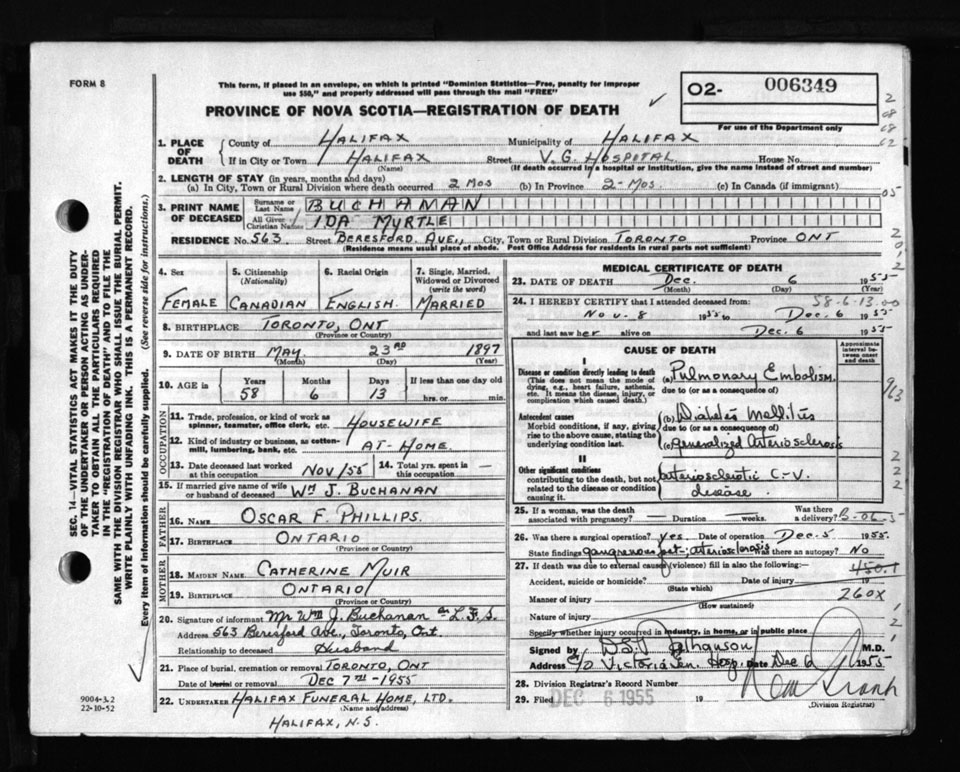 FORM 8
This form, if placed in an envelope, on which is printed "Dominion Statistics—Free, penalty for improper
use $50," and properly addressed will pass through the mail "FREE"
PROVINCE OF NOVA SCOTIA—REGISTRATION OF DEATH
O2- 006349
For use of the Department only
1. PLACE OF DEATH
County of HALIFAX Municipality of HALIFAX
If in City or Town HALIFAX Street V. G. HOSPITAL House No.
(Name) (If death occurred in a hospital or institution, give the name instead of street and number)
2. LENGTH OF STAY (in years, months and days)
(a) In City, Town or Rural Division where death occurred 2 MOS (b) In Province 2-MOS. (c) In Canada (if immigrant)
3. PRINT NAME OF DECEASED
Surname or Last Name BUCHANAN
All Given Christian Names IDA MYRTLE
RESIDENCE No. 563. Street BERESFORD AVE., City, Town or Rural Division TORONTO Province ONT
(Residence means usual place of abode. Post Office Address for residents in rural parts not sufficient)
4. Sex FEMALE
5. Citizenship (Nationality) CANADIAN
6. Racial Origin ENGLISH.
7. Single, Married, Widowed or Divorced (write the word) MARRIED
8. BIRTHPLACE TORONTO, ONT
(Province or Country)
9. DATE OF BIRTH MAY 23RD 1897
(Month) (Day) (Year)
10. AGE in Years 58 Months 6 Days 13 If less than one day old
hrs. or min.
OCCUPATION
11. Trade, profession, or kind of work as spinner, teamster, office clerk, etc. HOUSEWIFE
12. Kind of industry or business, as cotton-mill, lumbering, bank, etc. AT-HOME.
13. Date deceased last worked at this occupation NOV/55 14. Total yrs. spent in this occupation —
15. If married give name of wife or husband of deceased WM J. BUCHANAN
FATHER
16. NAME OSCAR F. PHILLIPS.
17. BIRTHPLACE ONTARIO
(Province or Country)
MOTHER
18. MAIDEN NAME CATHERINE MUIR
19. BIRTHPLACE ONTARIO
(Province or Country)
20. Signature of informant Mr Wm J. Buchanan L.F.S.
Address 563 Beresford Ave., Toronto, Ont.
Relationship to deceased Husband
21. Place of burial, cremation or removal TORONTO, ONT
Date of burial or removal DEC 7TH - 1955
22. UNDERTAKER HALIFAX FUNERAL HOME, LTD.
(Name and address)
HALIFAX, N.S.
MEDICAL CERTIFICATE OF DEATH
23. DATE OF DEATH Dec. 6 1955
(Month) (Day) (Year)
24. I HEREBY CERTIFY that I attended deceased from: 58-6-13.00
Nov. 8 1955 to Dec. 6 1955
and last saw her alive on Dec. 6 1955
CAUSE OF DEATH
Approximate interval between onset and death
I
Disease or condition directly leading to death
(This does not mean the mode of dying, e.g., heart failure, asthenia, etc. It means the disease, injury, or complication which caused death.)
(a) Pulmonary Embolism.
due to (or as a consequence of)
Antecedent causes
Morbid conditions, if any, giving rise to the above cause, stating the underlying condition last.
(b) Diabetes Mellitus
due to (or as a consequence of)
(c) generalized Arteriosclerosis
II
Other significant conditions
contributing to the death, but not related to the disease or condition causing it.
arteriosclerotic C-V. disease.
25. If a woman, was the death associated with pregnancy? — Duration — weeks. Was there a delivery?
26. Was there a surgical operation? yes. Date of operation Dec. 5 1955.
State findings gangrenous foot - arteriosclerosis Was there an autopsy? No
27. If death was due to external causes (violence) fill in also the following:— 450.1
Accident, suicide or homicide? Date of injury 19
(State which)
Manner of injury 260X
(How sustained)
Nature of injury
Specify whether injury occurred in industry, in home, or in public place
Signed by M.D.
Address c/o Victoria Gen. Hosp. Date Dec 6 1955
28. Division Registrar's Record Number
29. Filed DEC 6 1955 19
(Division Registrar)
SEC. 14—VITAL STATISTICS ACT MAKES IT THE DUTY
OF THE UNDERTAKER OR PERSON ACTING AS UNDER-
TAKER TO OBTAIN ALL THE PARTICULARS REQUIRED
IN THE "REGISTRATION OF DEATH" AND TO FILE THE
SAME WITH THE DIVISION REGISTRAR WHO SHALL ISSUE THE BURIAL PERMIT.
WRITE PLAINLY WITH UNFADING INK. THIS IS A PERMANENT RECORD.
Every item of information should be carefully supplied. (See reverse side for instructions.)
9004-J.2
22-10-52